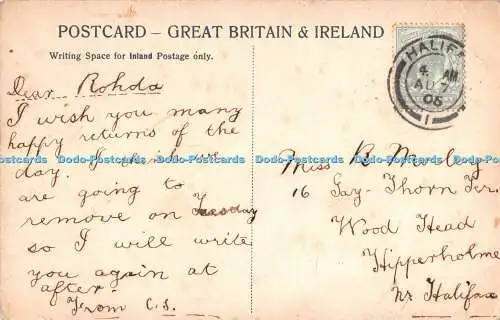 POSTCARD – GREAT BRITAIN & IRELAND
Writing Space for Inland Postage only.
HALIF
4 AM
AU 7
06
1
Dear Rohda
I wish you many
happy returns of the
day. I think we
are going to
remove on Tuesday
so I will write
you again at
after.
From C.S.
Miss R Morley
16 Gay-Thorn Ter.
Wood Head
Hipperholme
Nr Halifax
Dodo-Postcards Dodo-Postcards Dodo-Postcards Dodo-Postcards Dodo-Postcards Dodo-Postcards